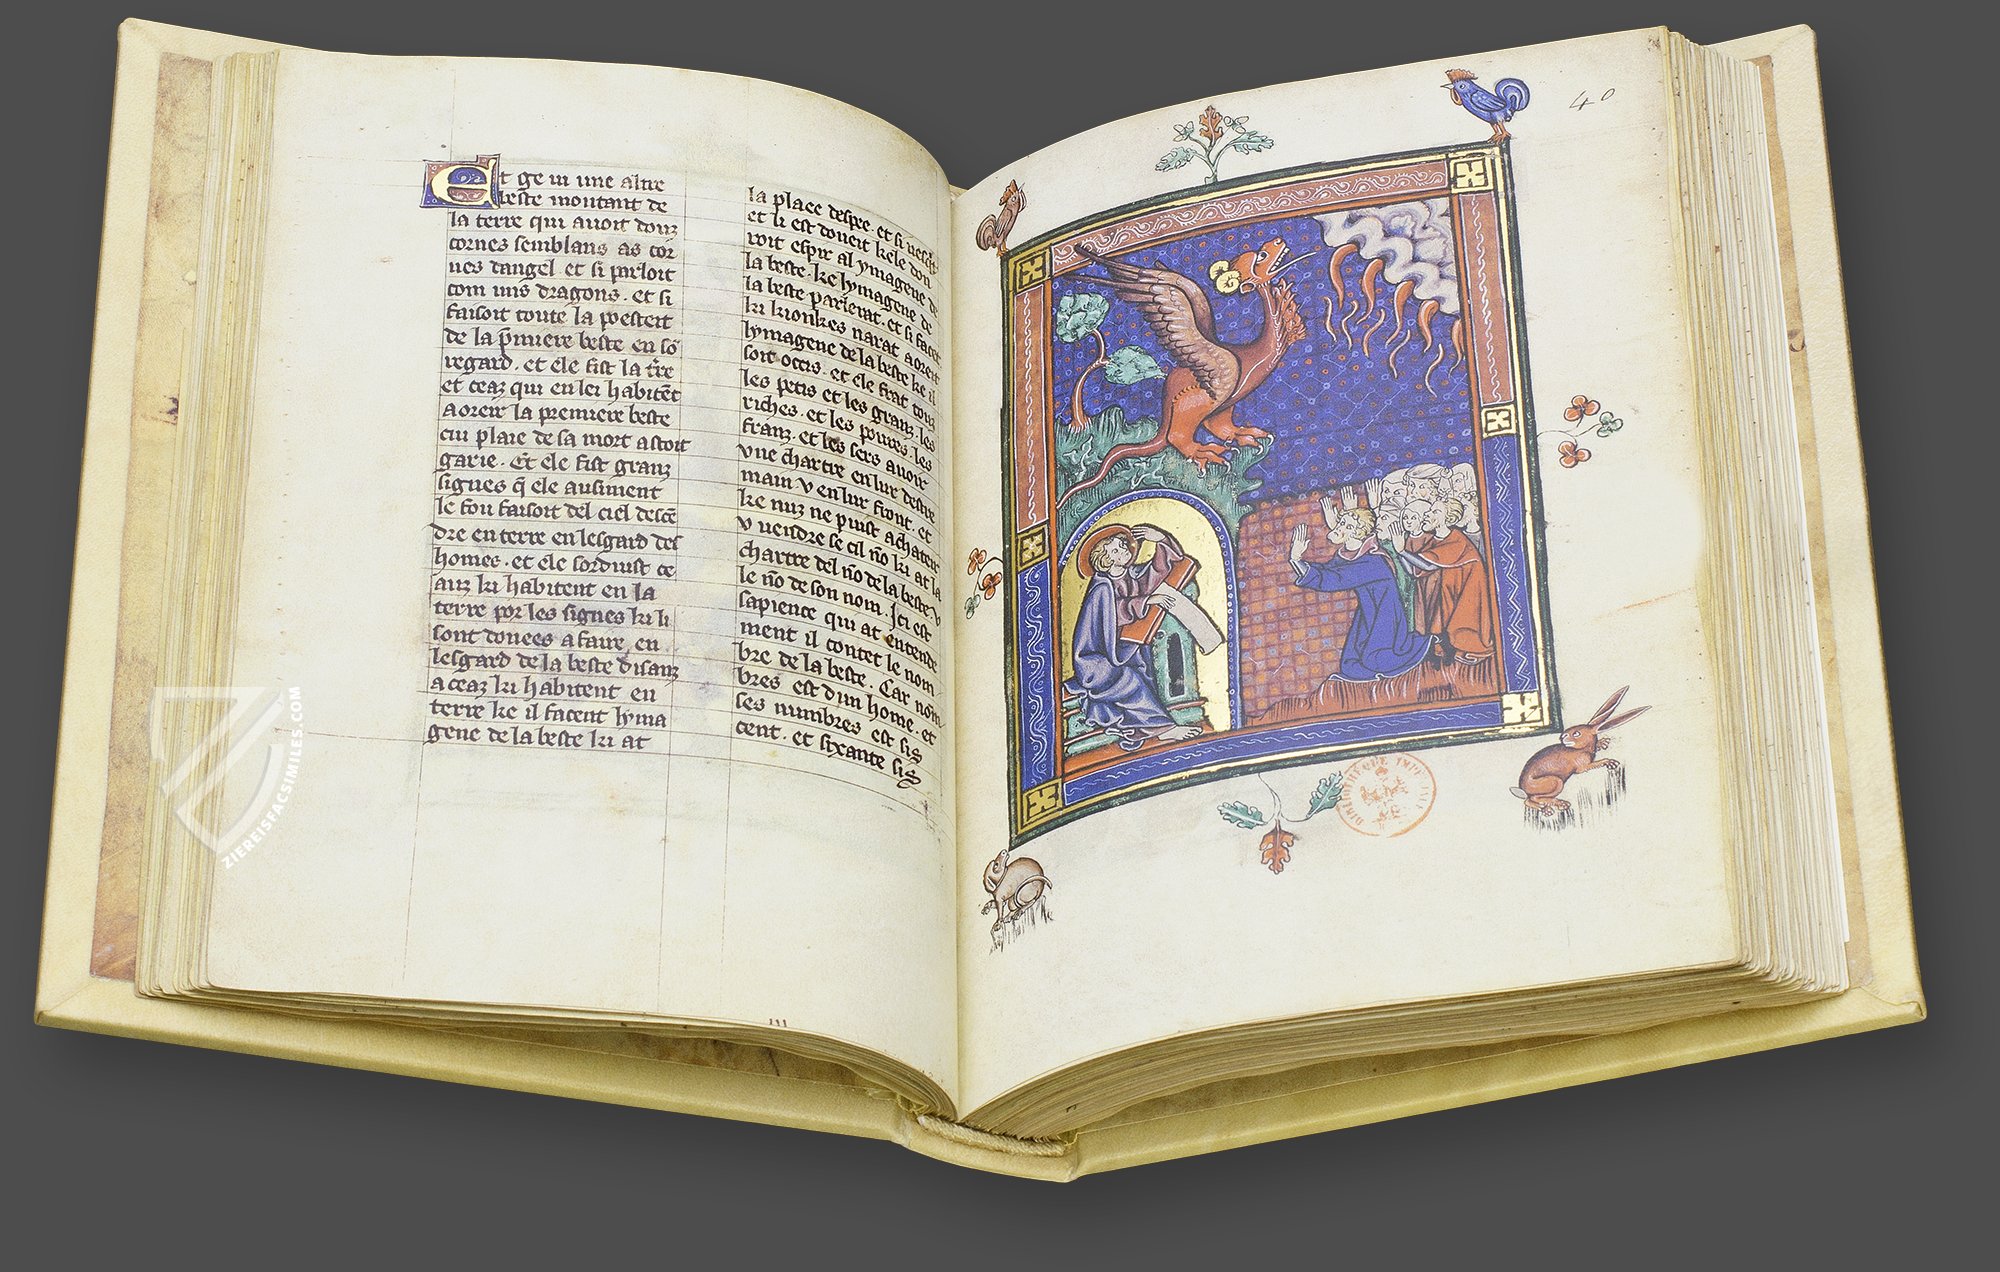 Et ge ui une altre
beste montant de
la terre qui auoit douz
cornes semblans as cor
nes dangel et si parloit
com uns dragons. et si
faisoit toute la poesteit
de la p̄miere beste en sō
regard. et ele fist la t̄re
et ceaz qui en lei habitēt
aoreir la premiere beste
cui plaie de sa mort astoit
garie. Et ele fist granz
signes q̄ ele ausiment
le fou faisoit del ciel descē
dre en terre en lesgard des
homes. et ele sorduist ce
auz ki habitent en la
terre por les signes ki li
sont donees a faire en
lesgard de la beste disanz
a ceaz ki habitent en
terre ke il facent lyma
gene de la beste ki at
la place despee. et si uesq̄
et li est doneit kele don
roit espir al ymagene de
la beste. ke lymagene de
la beste parlerat. et si facet
ki kionkes narat aoreit
lymagene de la beste ke il
soit occis. et ele frat touz
les petis et les granz. les
riches. et les poures. les
franz. et les sers auoir
vne chartre en lur destre
main v en lur front. et
ke nuz ne puist achateir
v uendre se cil nō ki at la
chartre del nō de la beste. v
le nō de son nom. Ici est
sapience qui at entende
ment il contet le nom
bre de la beste. Car nom
bres est dun home. et
ses numbres est sis
cent. et sixante sis
III
40
BIBLIOTHÈQUE IMP
ZIEREISFACSIMILES.COM